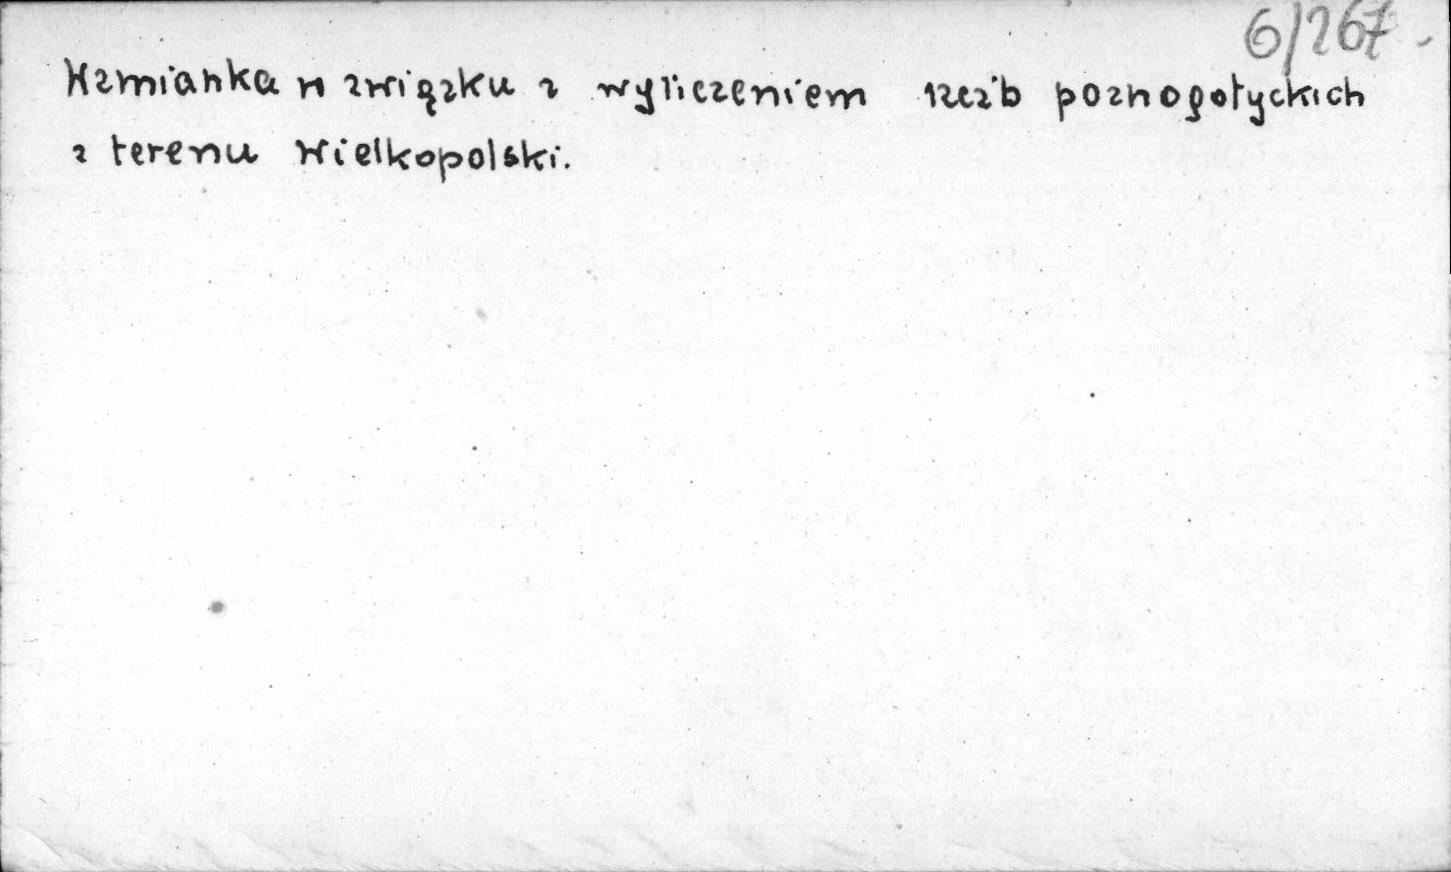 6/267
Wzmianka w związku z wyliczeniem rzeźb poznogotyckich
z terenu Wielkopolski.